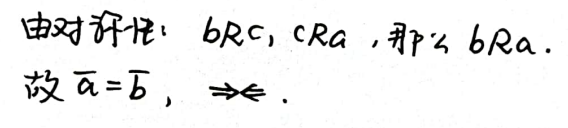 由对称性： bRc, cRa , 那么 bRa .
故 a̅ = b̅ , ⇒⇐ .